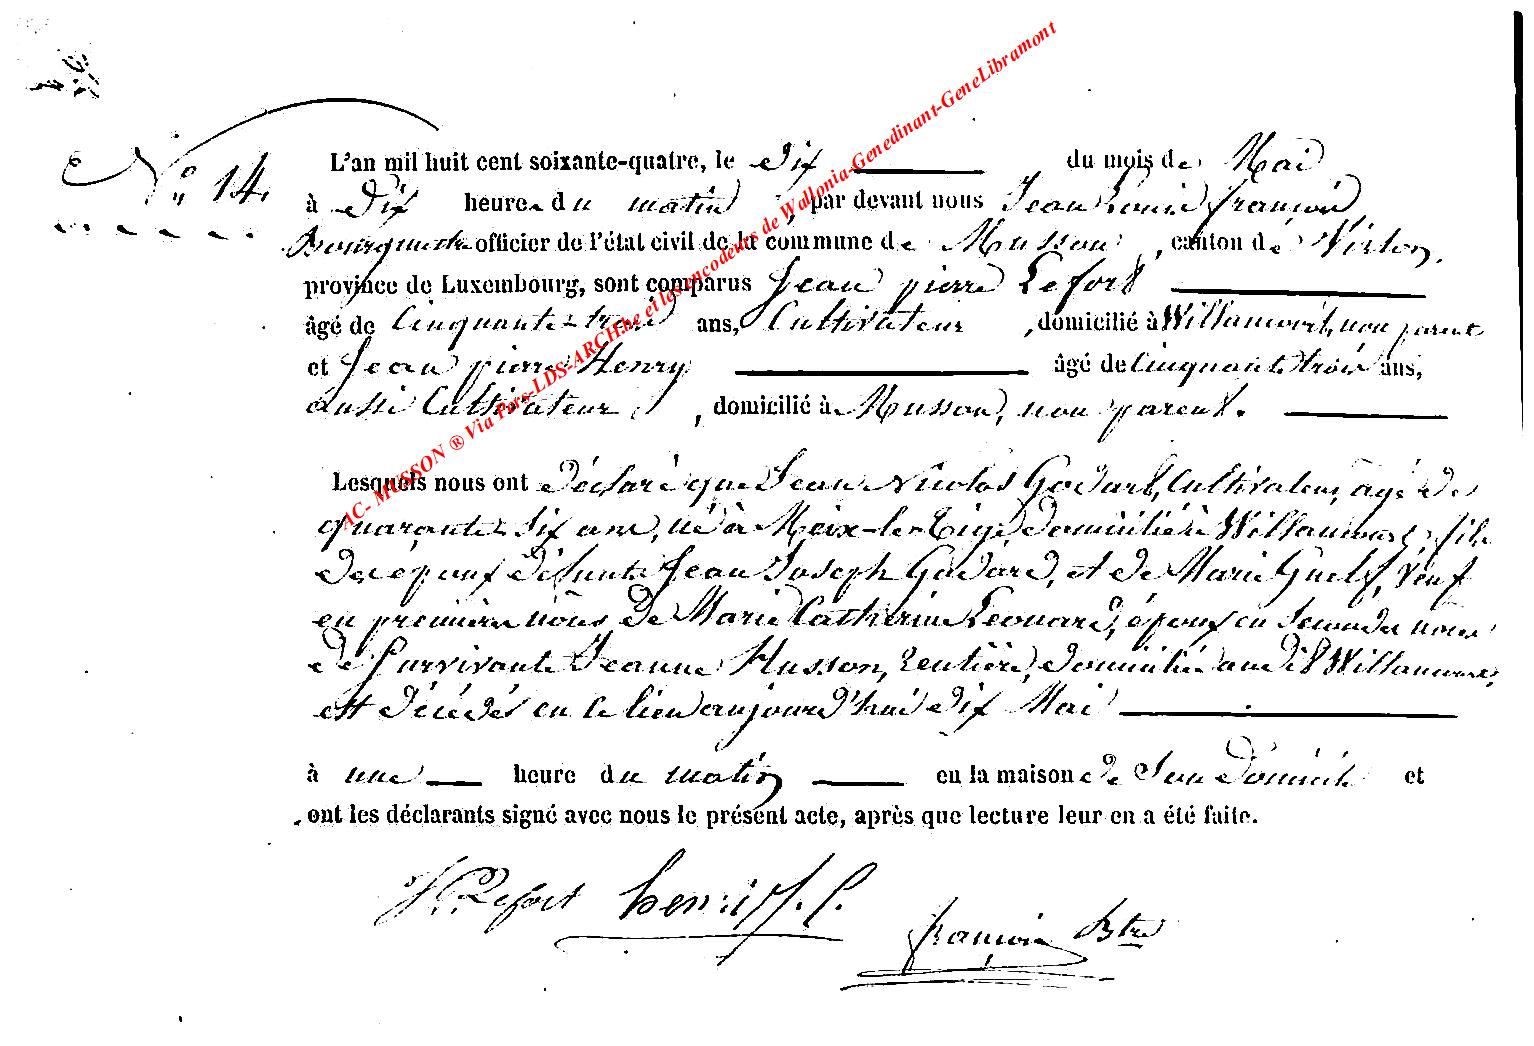 N° 14
L'an mil huit cent soixante-quatre, le dix du mois de Mai
à dix heures du matin, par devant nous Jean Louis françois
Bourguignon officier de l'état civil de la commune de Musson, canton de Virton,
province de Luxembourg, sont comparus Jean pierre Lefort
âgé de Cinquante-trois ans, Cultivateur, domicilié à Willancourt, non parent
et Jean pierre Henry âgé de Cinquante trois ans,
aussi Cultivateur, domicilié à Musson, non parent.
Lesquels nous ont déclaré que Jean Nicolas Godard, Cultivateur, âgé de
quarante-six ans, né à Meix-le-Tige, domicilié à Willancourt, fils
des époux défunts Jean Joseph Godard, et de Marie Guelf, veuf
en premières nôces de Marie Catherine Léonard, époux en Secondes nôces
de Survivante Jeanne Husson, rentière, domiciliée audit Willancourt,
est décédé en ce lieu aujourd'hui dix Mai
à une heure du matin en la maison de Son domicile et
ont les déclarants signé avec nous le présent acte, après que lecture leur en a été faite.
J. P. Lefort henri J. P.
françois Btre
AC- MUSSON ® Via Pers-LDS-ARCH.be et les encodeurs de Wallonia-Genedinant-GeneLibramont